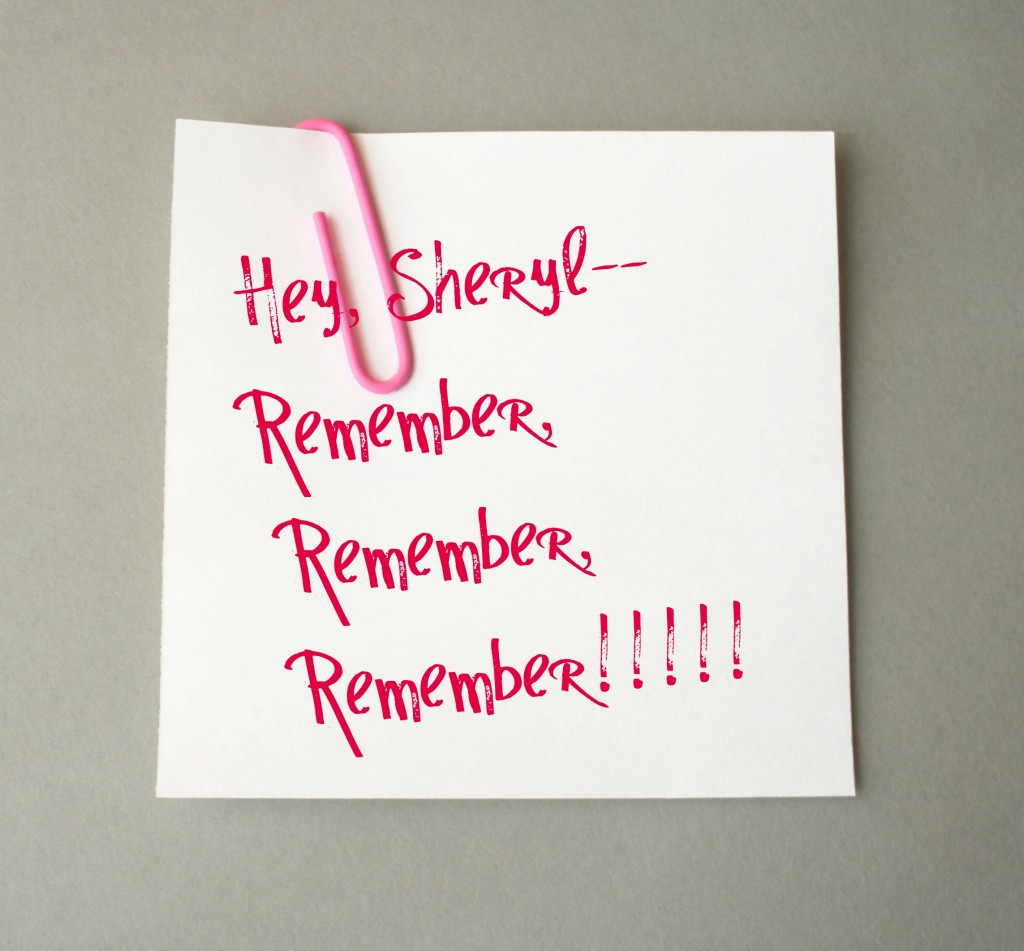 Hey, Sheryl--
Remember,
Remember,
Remember!!!!!